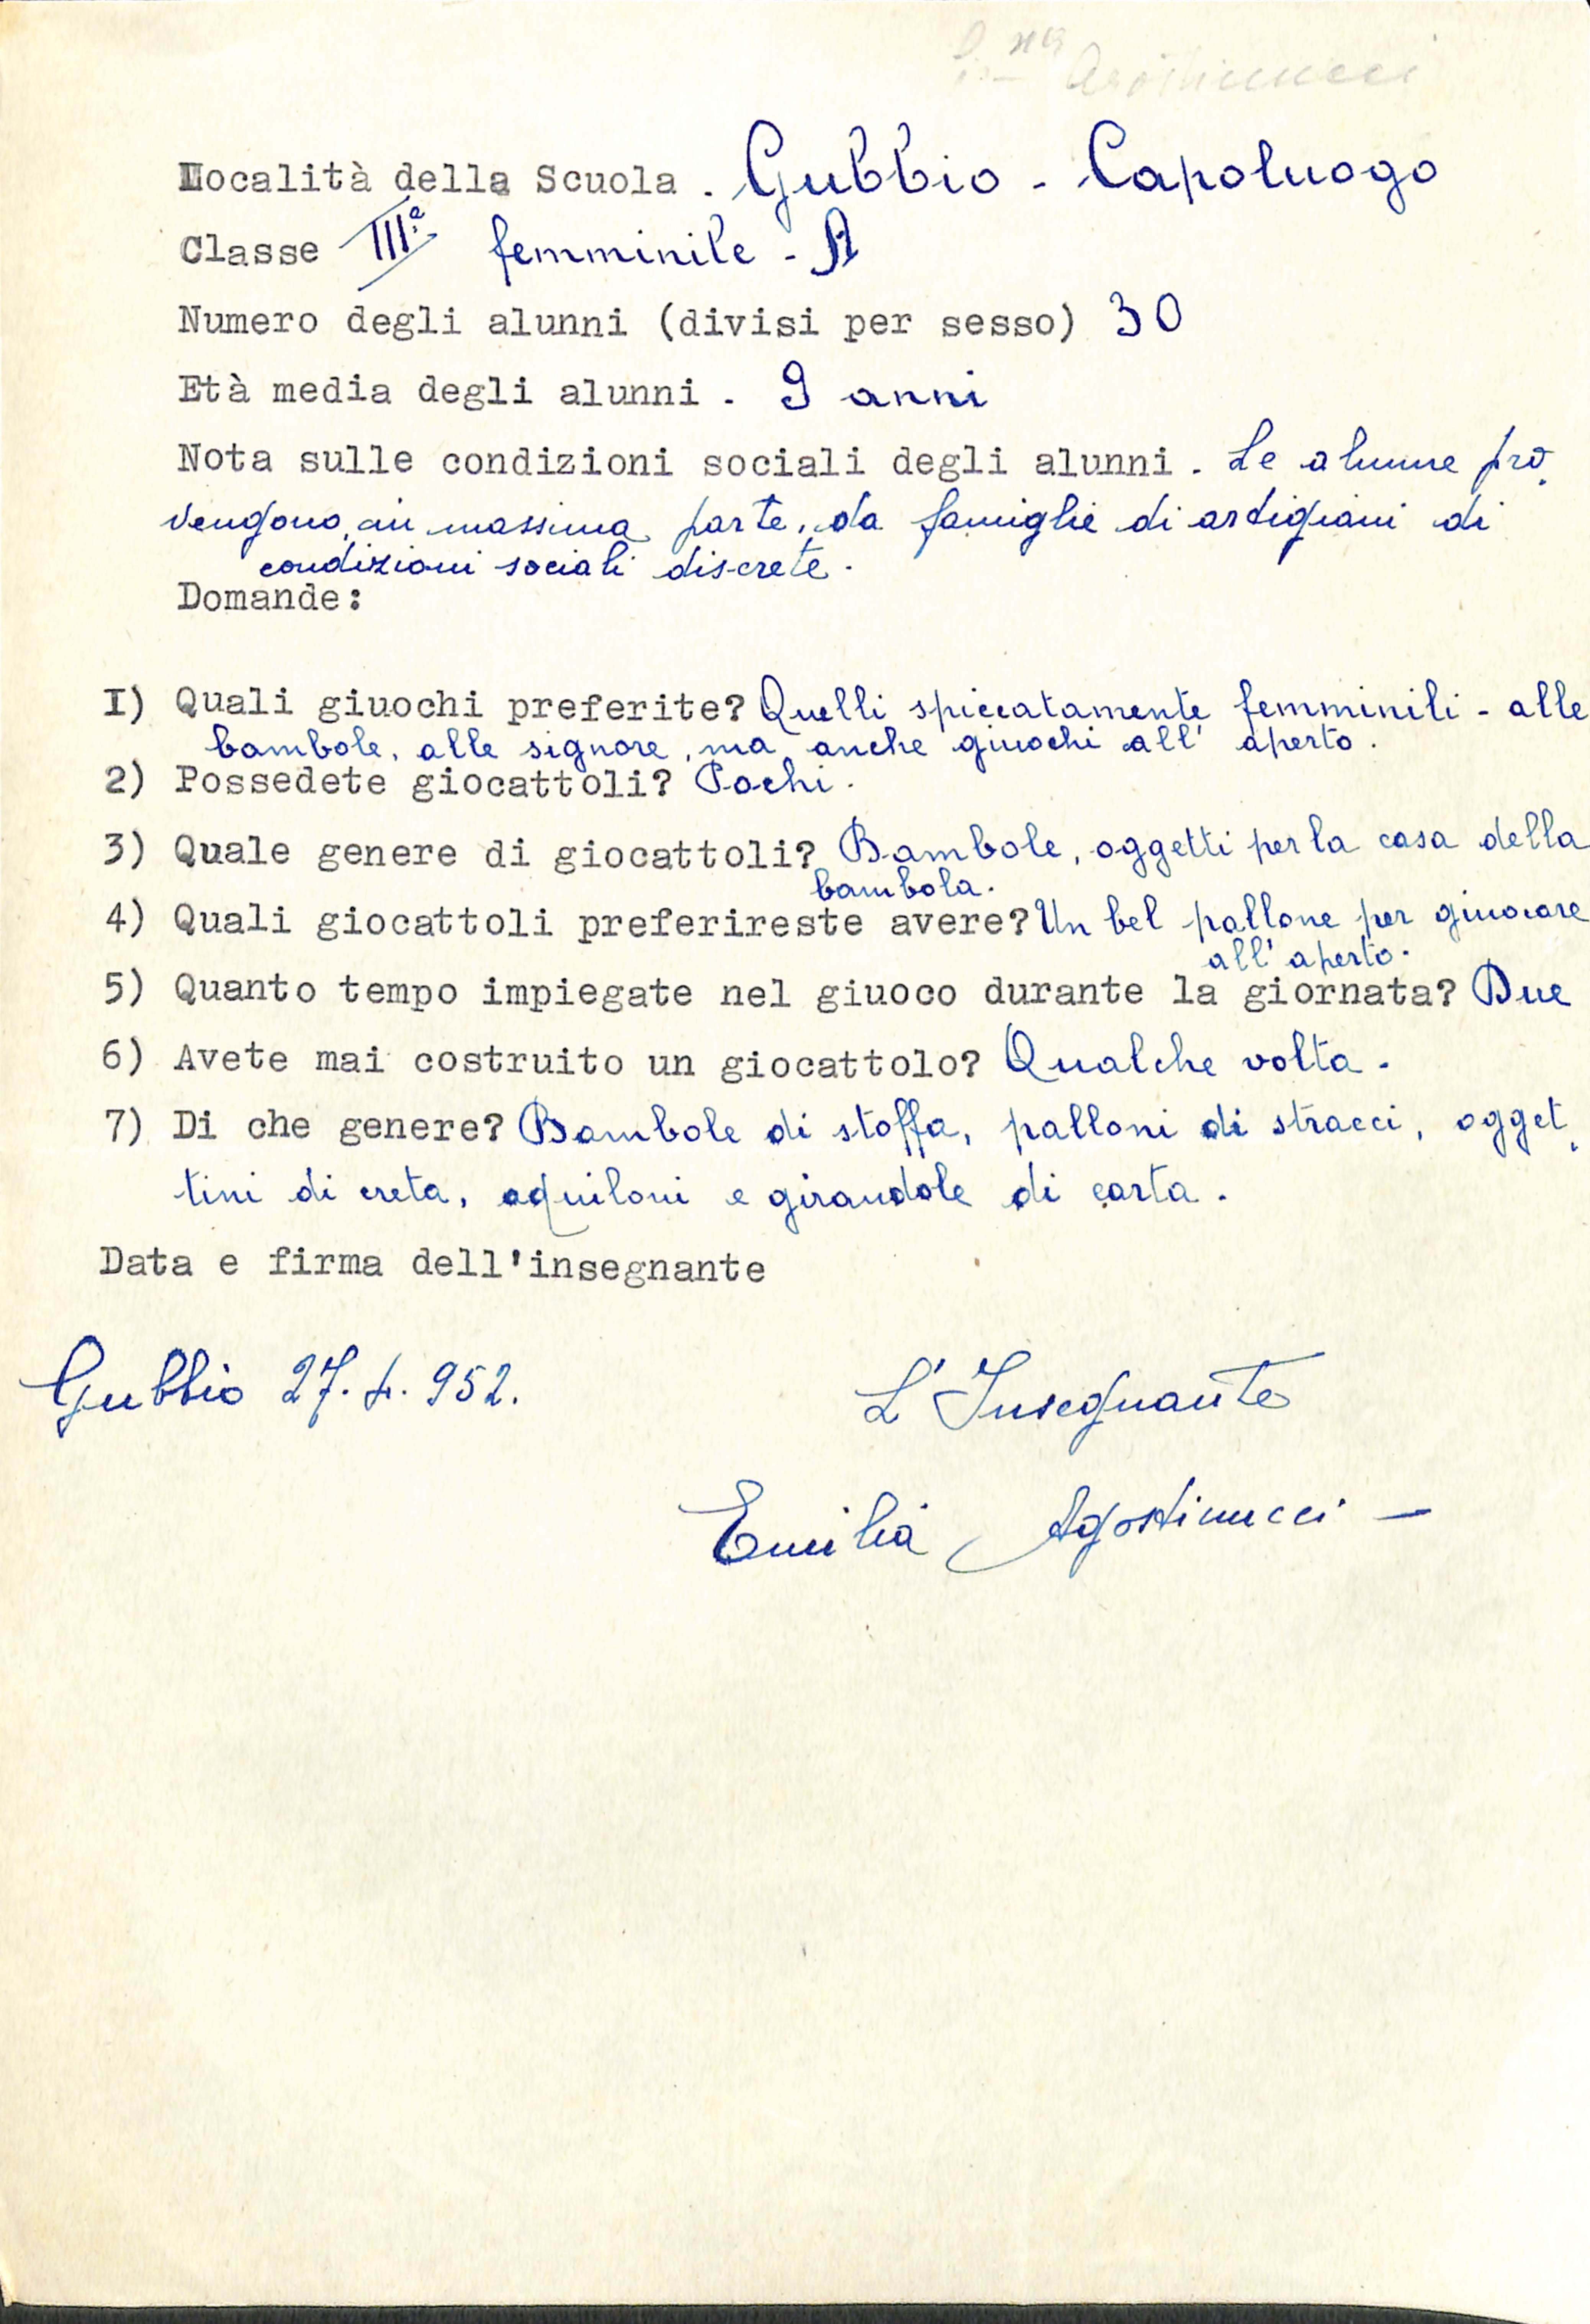 Agostinucci
Località della Scuola . Gubbio - Capoluogo
Classe IIIª femminile - A
Numero degli alunni (divisi per sesso) 30
Età media degli alunni . 9 anni
Nota sulle condizioni sociali degli alunni . Le alunne pro
vengono, in massima parte, da famiglie di artigiani di
condizioni sociali discrete.
Domande:
I) Quali giuochi preferite? Quelli spiccatamente femminili - alle
bambole, alle signore, ma anche giuochi all'aperto.
2) Possedete giocattoli? Pochi.
3) Quale genere di giocattoli? Bambole, oggetti per la casa della
bambola.
4) Quali giocattoli preferireste avere? Un bel pallone per giuocare
all'aperto.
5) Quanto tempo impiegate nel giuoco durante la giornata? Due
6) Avete mai costruito un giocattolo? Qualche volta.
7) Di che genere? Bambole di stoffa, palloni di stracci, ogget
tini di creta, aquiloni e girandole di carta.
Data e firma dell'insegnante
Gubbio 27.4.952.
L'Insegnante
Emilia Agostinucci -